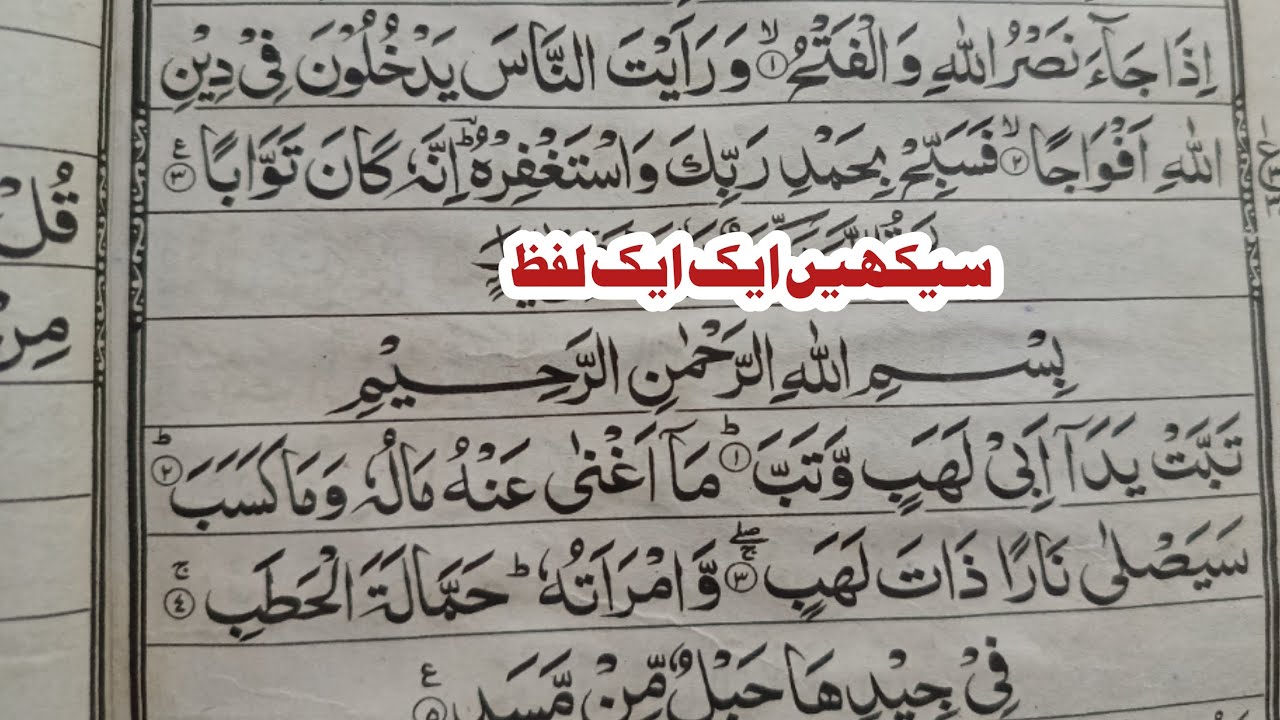 اِذَا جَآءَ نَصْرُ اللّٰهِ وَالْفَتْحُ ۙ۝۱ وَرَاَيْتَ النَّاسَ يَدْخُلُوْنَ فِيْ دِيْنِ
اللّٰهِ اَفْوَاجًا ۙ۝۲ فَسَبِّحْ بِحَمْدِ رَبِّكَ وَاسْتَغْفِرْهُ ؕ اِنَّهٗ كَانَ تَوَّابًا ۝۳ ع
سیکھیں ایک ایک لفظ
بِسْمِ اللّٰهِ الرَّحْمٰنِ الرَّحِيْمِ
تَبَّتْ يَدَآ اَبِيْ لَهَبٍ وَّتَبَّ ؕ۝۱ مَآ اَغْنٰى عَنْهُ مَالُهٗ وَمَا كَسَبَ ؕ۝۲
سَيَصْلٰى نَارًا ذَاتَ لَهَبٍ ۖۚ۝۳ وَّامْرَاَتُهٗ ؕ حَمَّالَةَ الْحَطَبِ ۚ۝۴
فِيْ جِيْدِهَا حَبْلٌ مِّنْ مَّسَدٍ ۝۵ ع
قُلْ
مِنْ